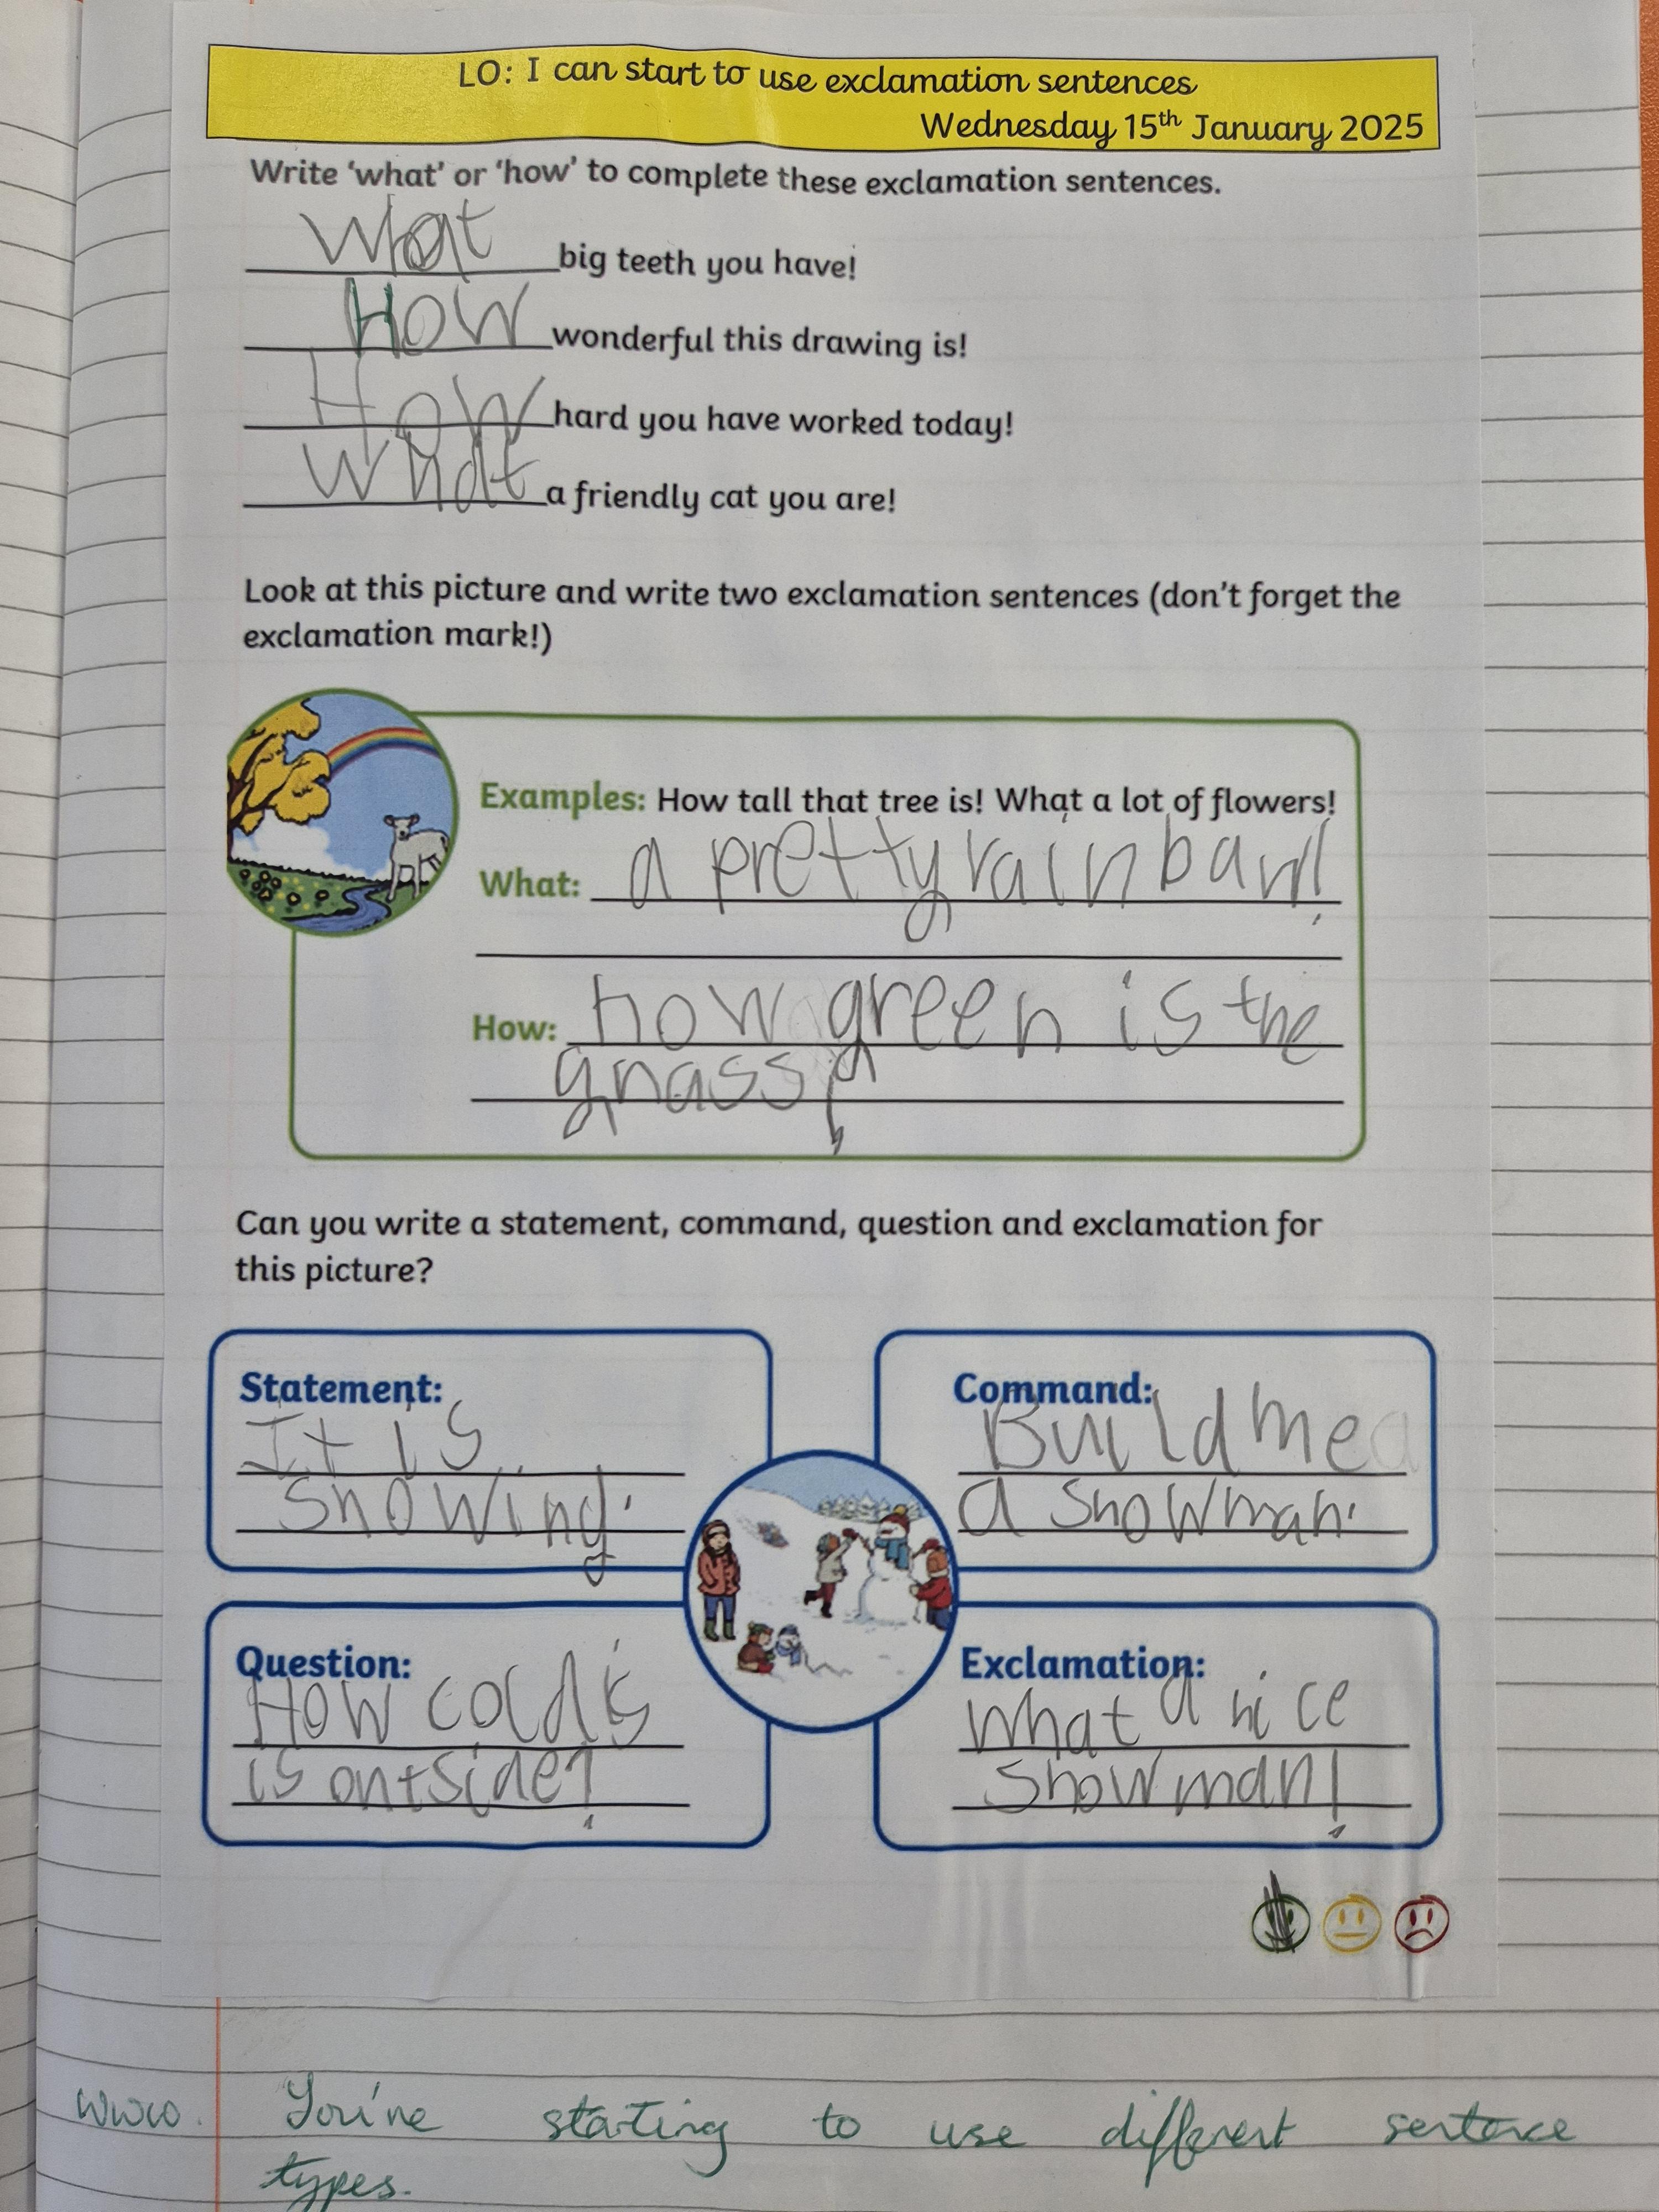 LO: I can start to use exclamation sentences
Wednesday 15th January 2025
Write 'what' or 'how' to complete these exclamation sentences.
What big teeth you have!
How wonderful this drawing is!
How hard you have worked today!
What a friendly cat you are!
Look at this picture and write two exclamation sentences (don't forget the
exclamation mark!)
Examples: How tall that tree is! What a lot of flowers!
What: a pretty rainbaw!
How: how green is the
gnass!
Can you write a statement, command, question and exclamation for
this picture?
Statement:
It is
snowing.
Command:
Build me
a snowman.
Question:
How cold is
is outside?
Exclamation:
What a nice
snowman!
WWW. You're starting to use different sentence
types.